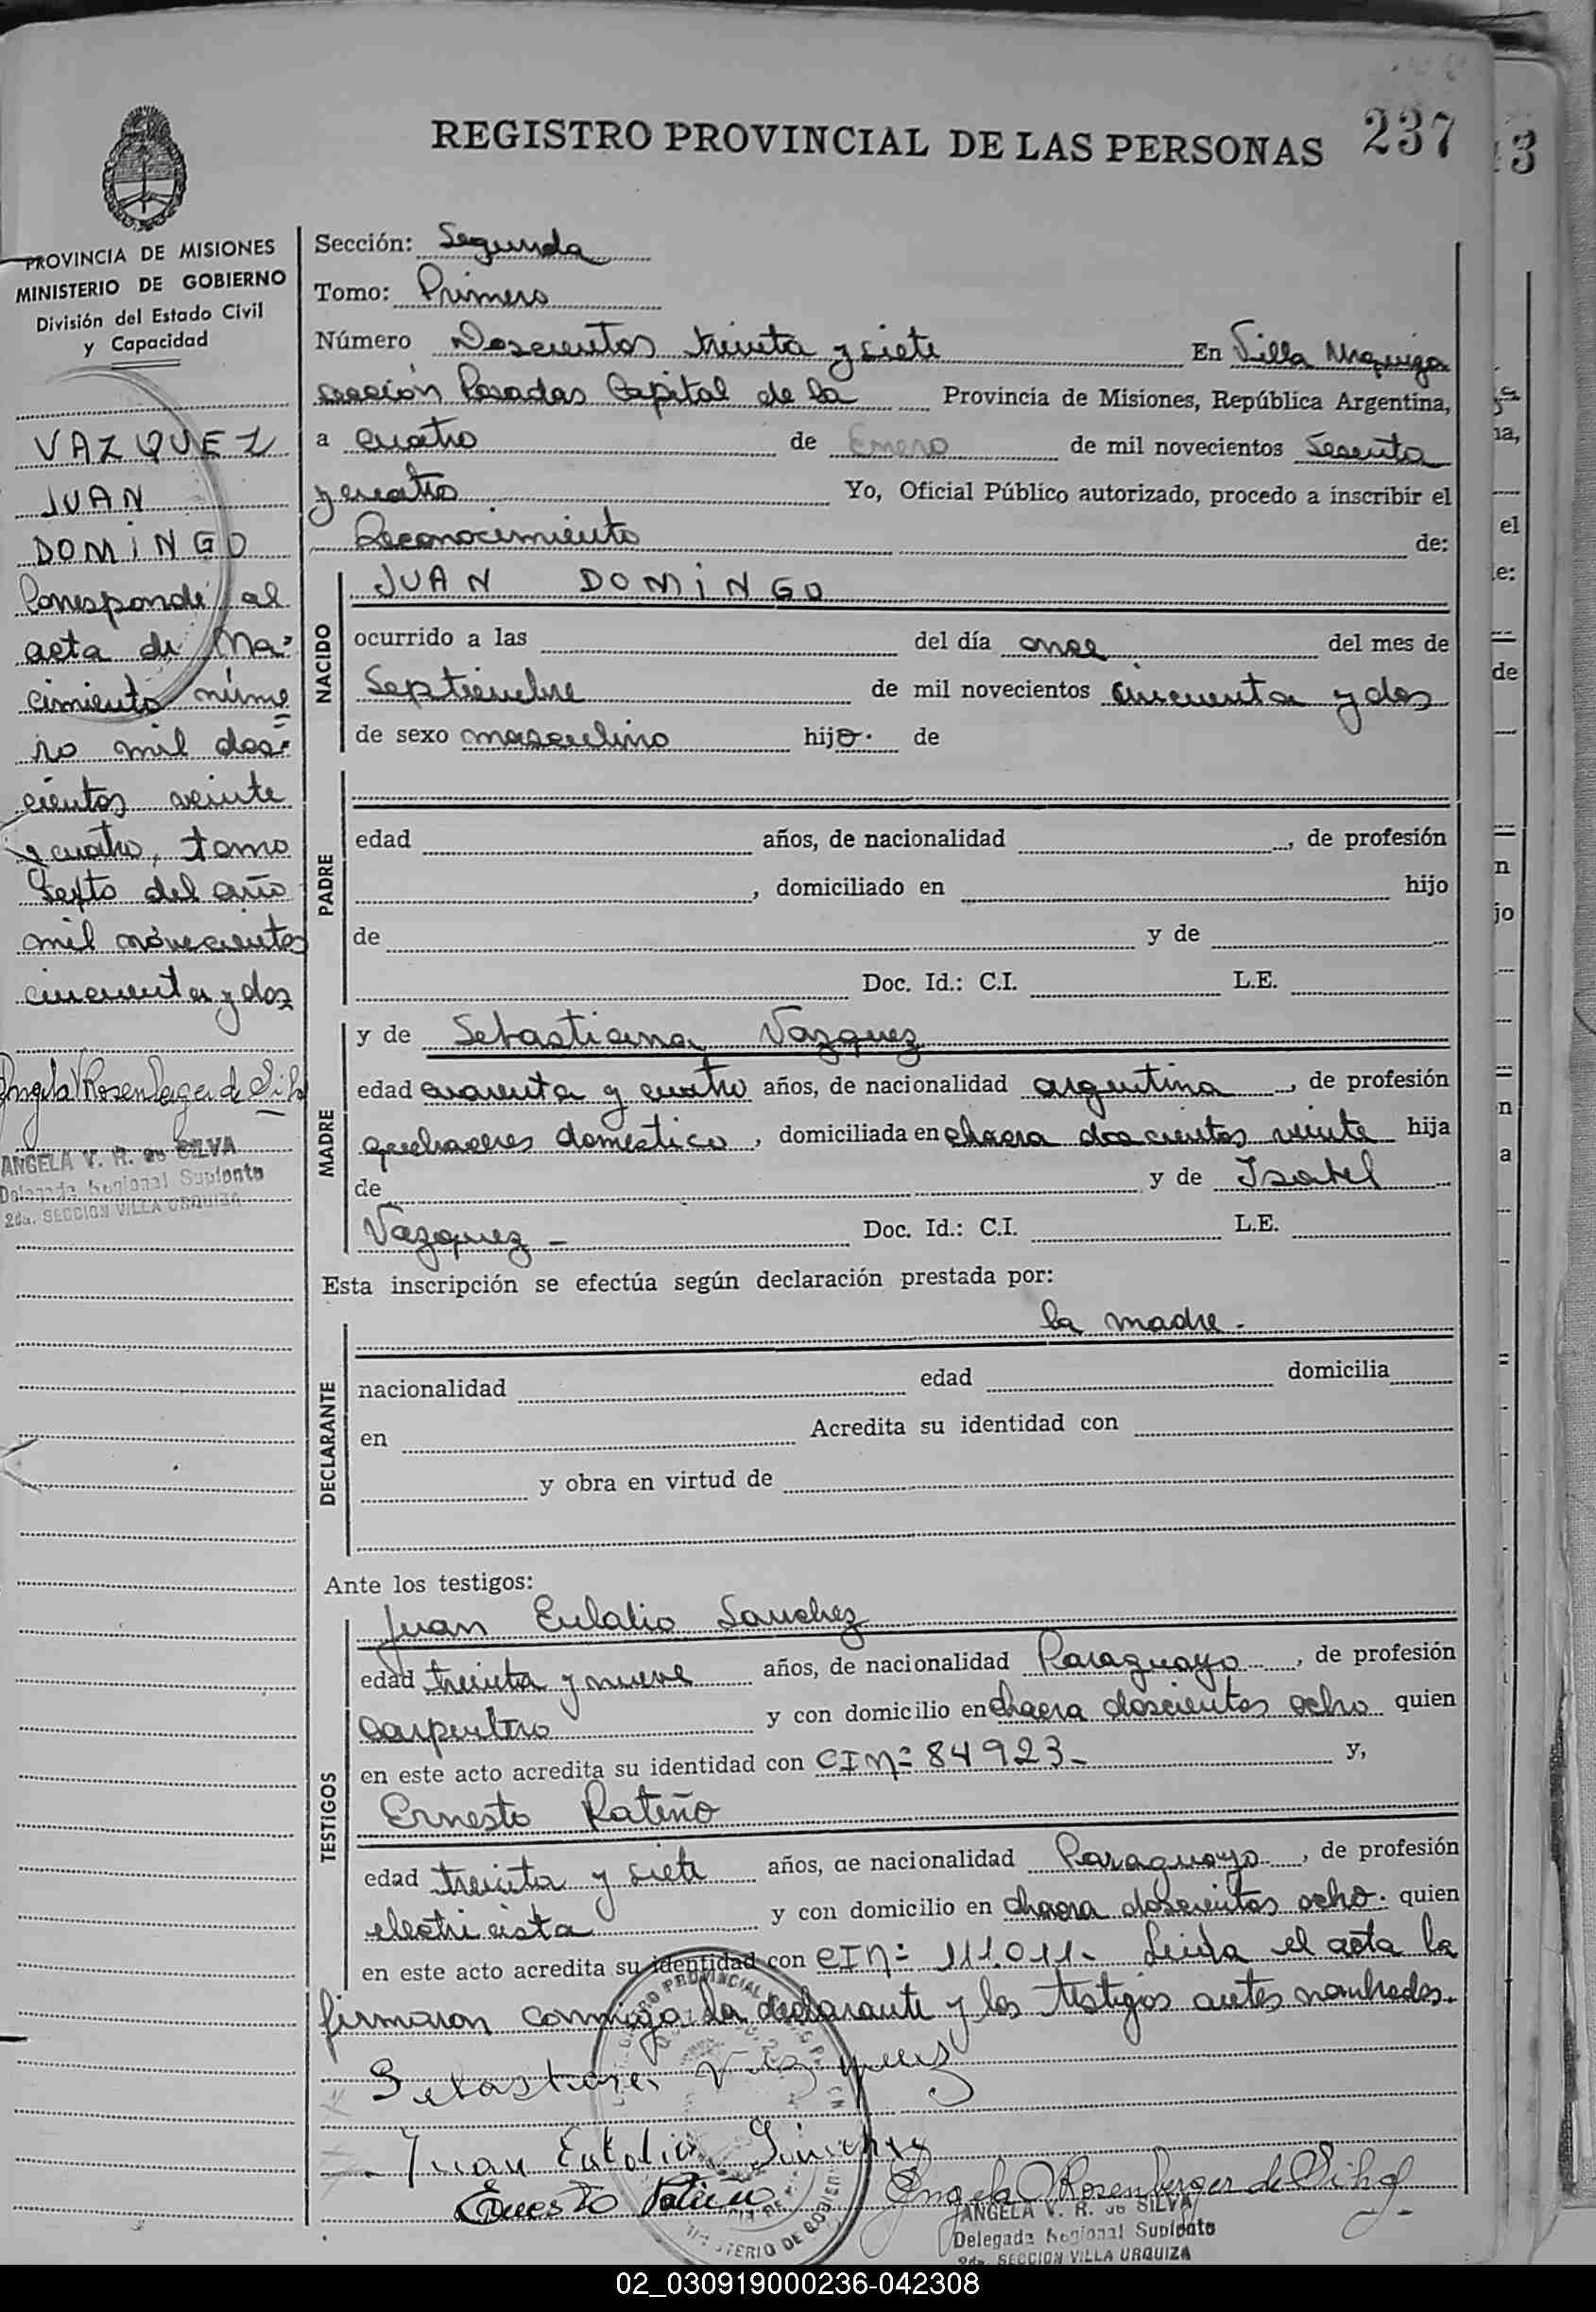 REGISTRO PROVINCIAL DE LAS PERSONAS 237
3
PROVINCIA DE MISIONES
MINISTERIO DE GOBIERNO
División del Estado Civil
y Capacidad
VAZQUEZ
JUAN
DOMINGO
Corresponde al
acta de Na-
cimiento núme
ro mil dos-
cientos veinte
y cuatro, tomo
Sexto del año
mil novecientos
cincuenta y dos
Angela V Rosenberger de Silva
ANGELA V. R. de SILVA
Delegada Regional Suplente
2da. SECCION VILLA URQUIZA
Sección: Segunda
Tomo: Primero
Número Doscientos treinta y siete En Villa Urquiza
sección Posadas Capital de la Provincia de Misiones, República Argentina,
a cuatro de Enero de mil novecientos Sesenta
y cuatro Yo, Oficial Público autorizado, procedo a inscribir el
Reconocimiento de:
NACIDO
JUAN DOMINGO
ocurrido a las del día once del mes de
Septiembre de mil novecientos cincuenta y dos
de sexo masculino hijo. de
PADRE
edad años, de nacionalidad , de profesión
, domiciliado en hijo
de y de
Doc. Id.: C.I. L.E.
MADRE
y de Sebastiana Vazquez
edad cuarenta y cuatro años, de nacionalidad argentina , de profesión
quehaceres domestico , domiciliada en chacra doscientos veinte hija
de y de Isabel
Vazquez - Doc. Id.: C.I. L.E.
Esta inscripción se efectúa según declaración prestada por:
DECLARANTE
la madre.
nacionalidad edad domicilia
en Acredita su identidad con
y obra en virtud de
Ante los testigos:
TESTIGOS
Juan Eulalio Sanchez
edad treinta y nueve años, de nacionalidad Paraguayo , de profesión
carpintero y con domicilio en chacra doscientos ocho quien
en este acto acredita su identidad con CI Nº 84923- y,
Ernesto Patiño
edad treinta y siete años, de nacionalidad Paraguayo , de profesión
electricista y con domicilio en chacra doscientos ocho. quien
en este acto acredita su identidad con CI Nº 111.011- Leida el acta la
firmaron conmigo la declarante y los testigos antes nombrados.
Sebastiana Vazquez
Juan Eulalio Sanchez
Ernesto Patiño
Angela V Rosenberger de Silva
ANGELA V. R. de SILVA
Delegada Regional Suplente
2da. SECCION VILLA URQUIZA
02_030919000236-042308